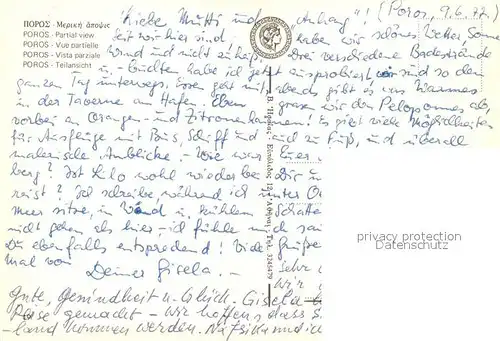 ΠΟΡΟΣ - Μερική άποψις
POROS - Partial view
POROS - Vue partielle
POROS - Vista parziale
POROS - Teilansicht
(Poros, 9.6.77.)
Liebe Mutti und „Anhang"!
Seit wir hier sind, haben wir schönes Wetter, Sonne
Wind und nicht zu heiß. Drei verschiedene Badestrände
u. -buchten habe ich jetzt ausprobiert, wir sind so den
ganzen Tag unterwegs. Essen geht's abends gibt es was Warmes
in der Taverne am Hafen. Eben wir den Peloponnes ab,
vorbei an Orangen- und Zitronenhainen! Es gibt viele Möglichkeiten
für Ausflüge mit Bus, Schiff und auch zu Fuß, und überall
malerische Anblicke. - Wie war Euer
berg? Ist Lilo wohl wieder bei Dir
reist? Ich schreibe, während ich unter
Meer sitze, in Wind u. kühlem Schatten
nicht gehen als hier - ich fühle mich
Du ebenfalls entspredend! Viele Grüße
mal von
Deiner Gisela. -
Sehr
Wir
Gute, Gesundheit u. Glück. Gisela
Reise gemacht - Wir hoffen, dass
-land kommen werden. Nafsika und ich
Β. Ευπόλιδος 12 - Αθήναι Τηλ. 3245479
privacy protection
Datenschutz